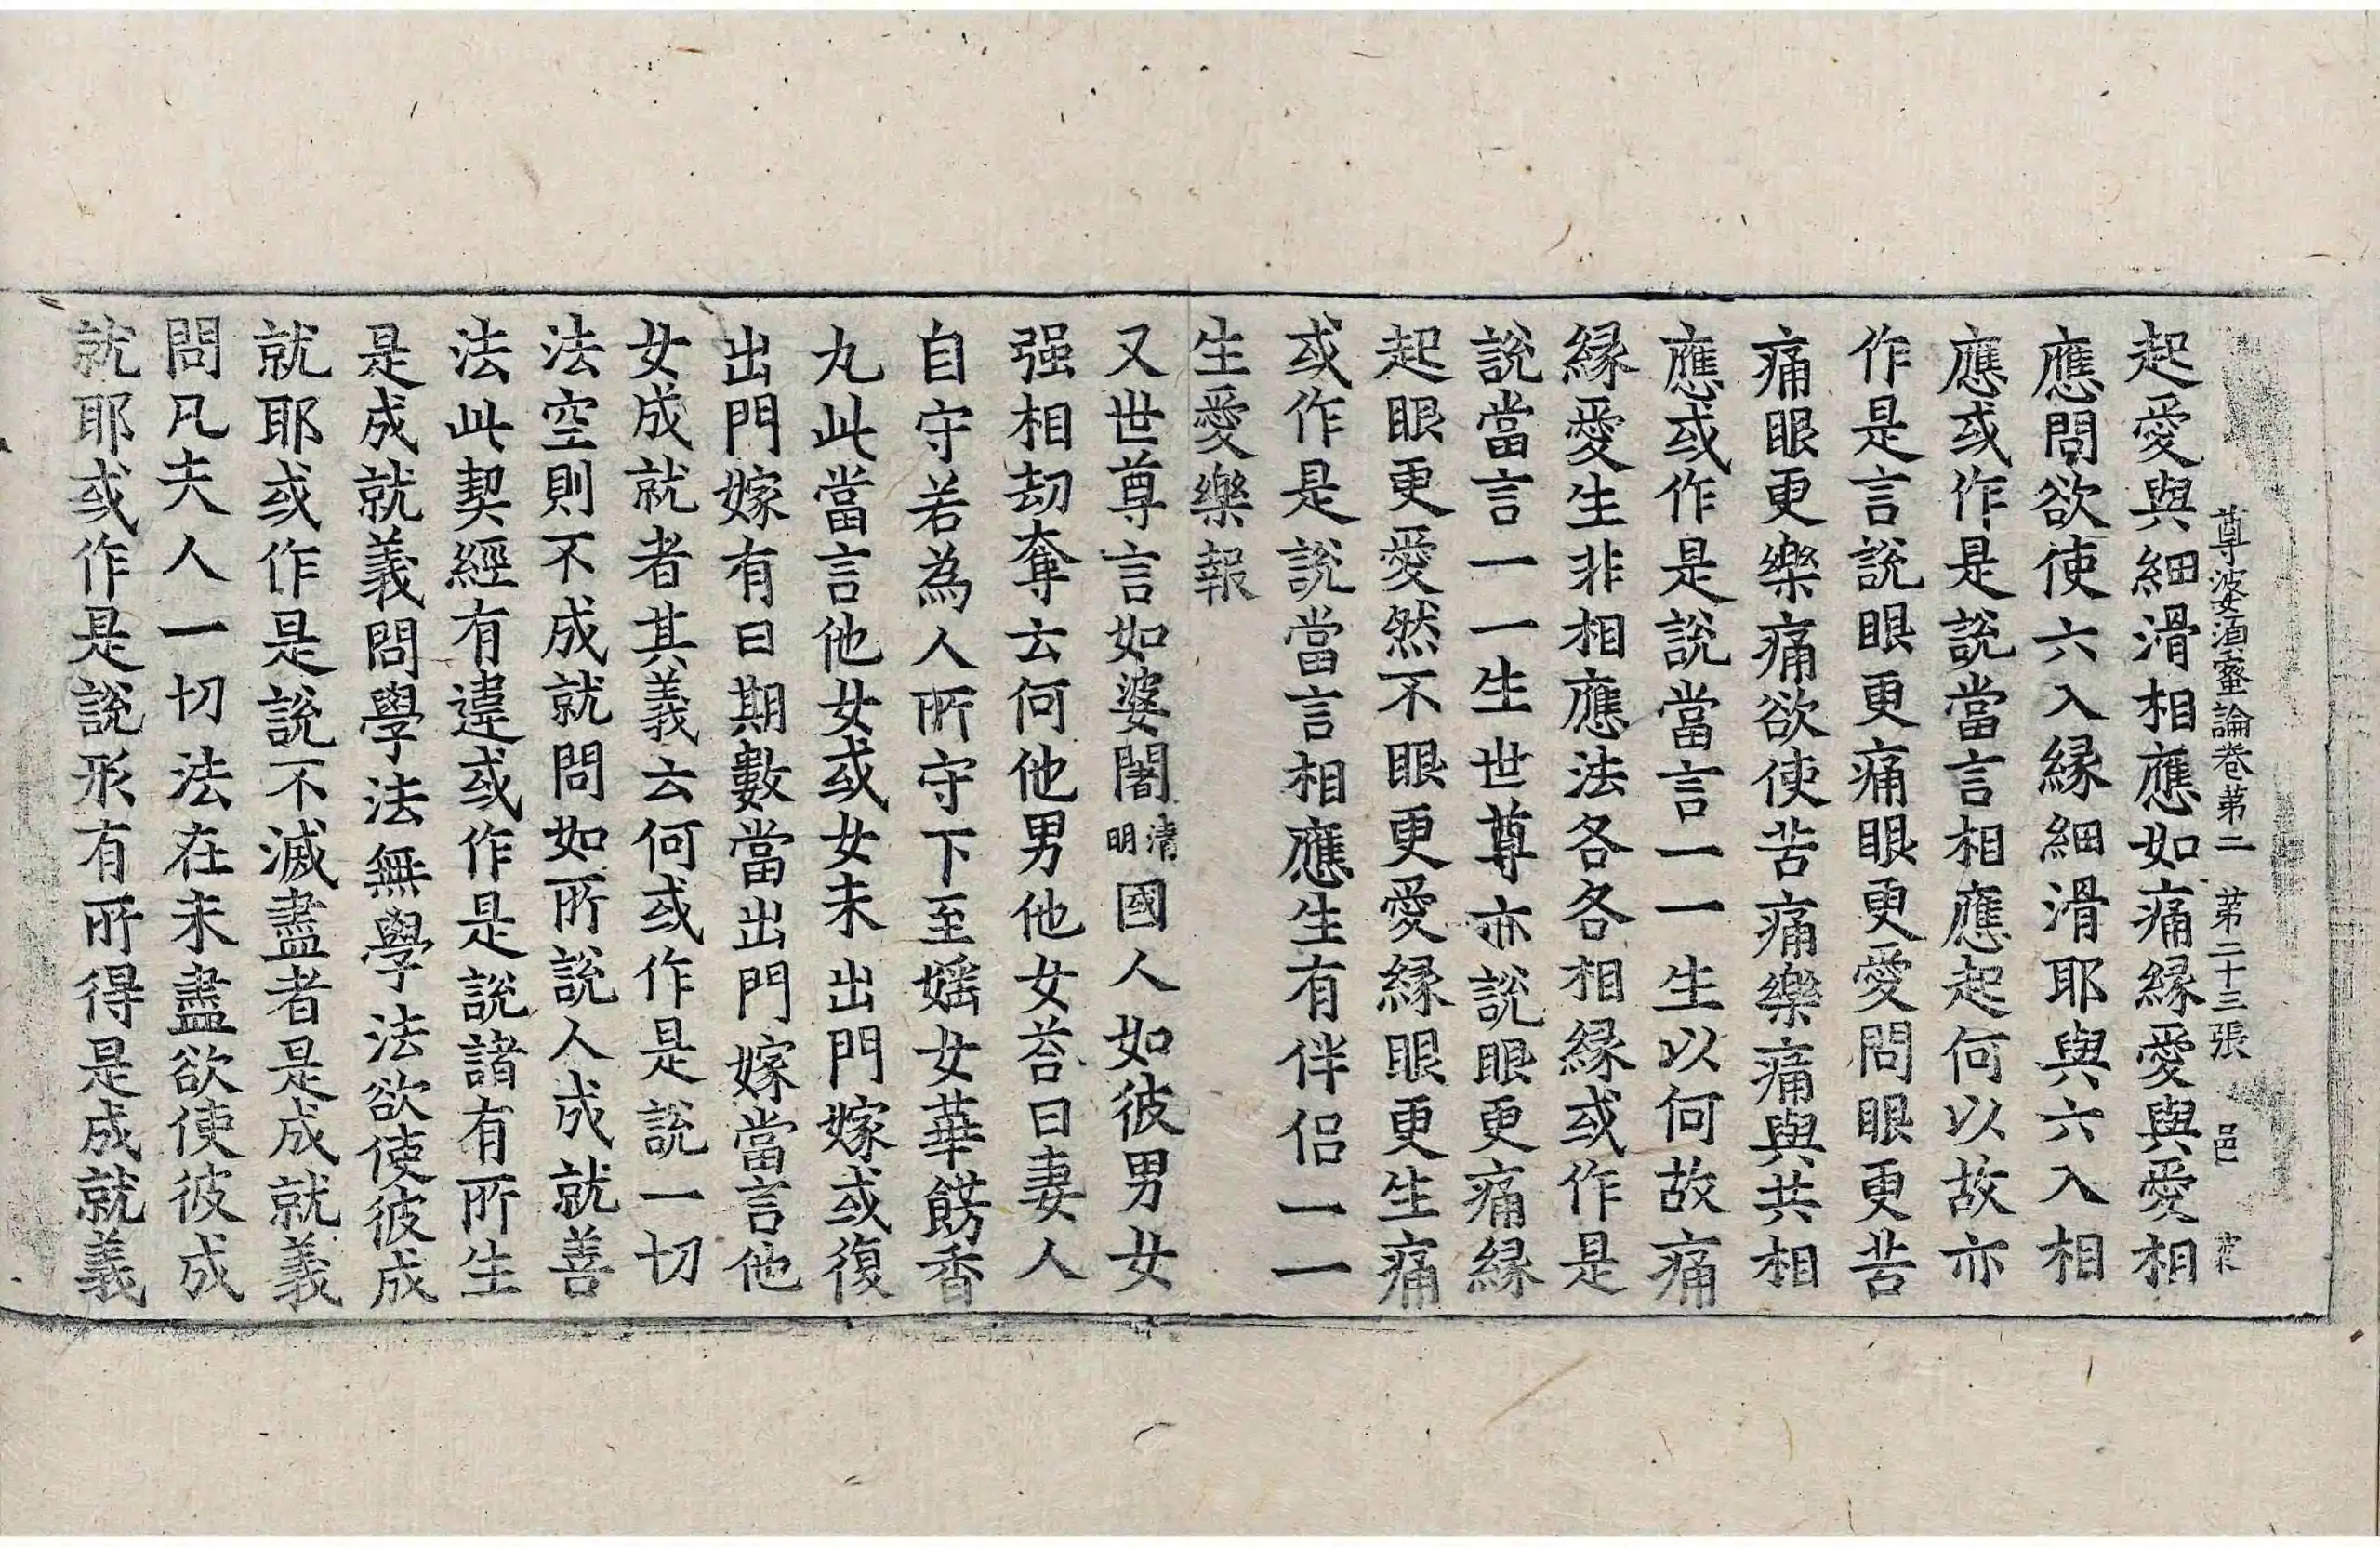 尊婆須蜜論卷苐二　苐二十三張　邑
起愛與細滑相應如痛縁愛與愛相
應問欲使六入縁細滑耶與六入相
應或作是說當言相應起何以故亦
作是言說眼更痛眼更愛問眼更苦
痛眼更樂痛欲使苦痛樂痛與共相
應或作是說當言一一生以何故痛
縁愛生非相應法各各相縁或作是
說當言一一生世尊亦說眼更痛縁
起眼更愛然不眼更愛縁眼更生痛
或作是說當言相應生有伴侣一一
生愛樂報
又世尊言如婆闍清明國人如彼男女
强相劫奪云何他男他女荅曰妻人
自守若為人所守下至婬女華餝香
丸此當言他女或女未出門嫁或復
出門嫁有日期數當出門嫁當言他
女成就者其義云何或作是說一切
法空則不成就問如所說人成就善
法此契經有違或作是說諸有所生
是成就義問學法無學法欲使彼成
就耶或作是說不滅盡者是成就義
問凡夫人一切法在未盡欲使彼成
就耶或作是說形有所得是成就義